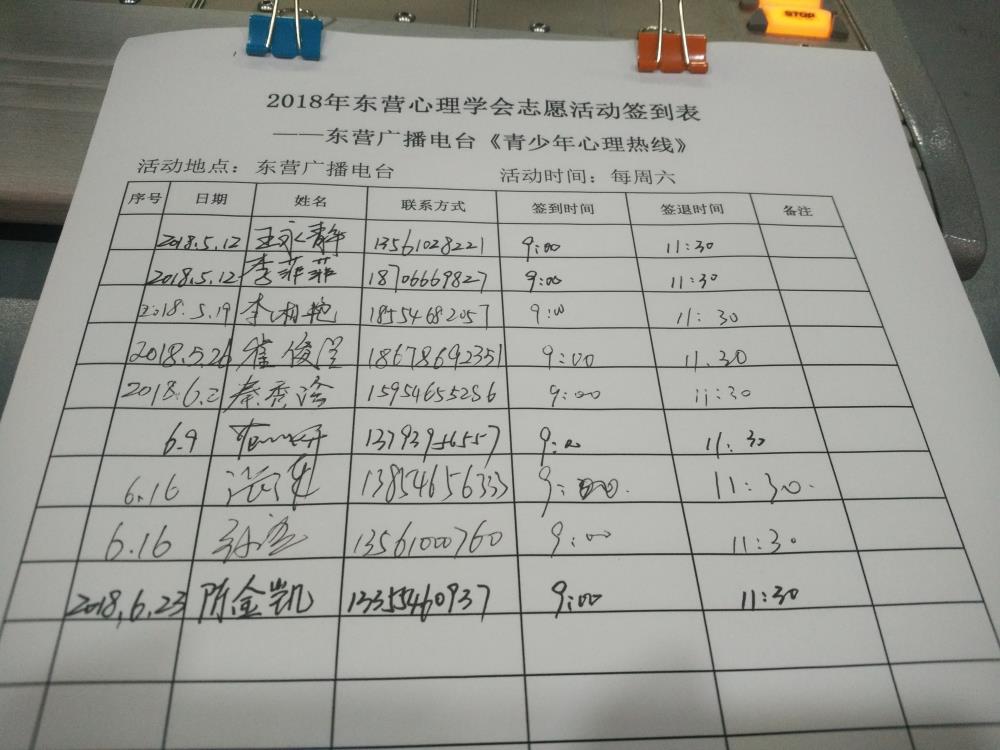 STOP
2018年东营心理学会志愿活动签到表
——东营广播电台《青少年心理热线》
活动地点：东营广播电台 活动时间：每周六
序号 日期 姓名 联系方式 签到时间 签退时间 备注
2018.5.12 王永青华 13561028221 9:00 11:30
2018.5.12 李菲菲 18706669827 9:00 11:30
2018.5.19 李湘艳 18554682057 9:00 11:30
2018.5.26 崔俊 18678692351 9:00 11.30
2018.6.2 秦秀 15954655286 9:00 11:30
6.9 13793956557 9:00 11:30
6.16 13854656333 9:00. 11:30.
6.16 孙 13561000760 9:00 11:30
2018.6.23 陈金凯 13355460937 9:00 11:30